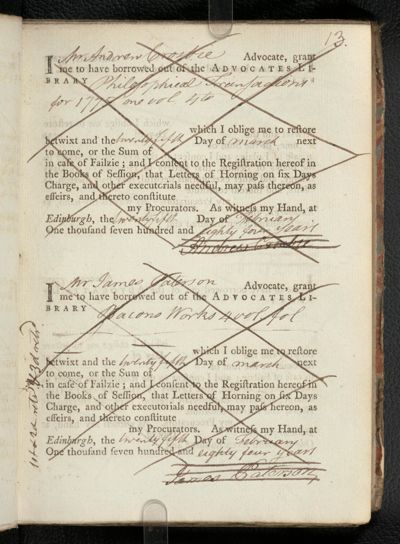 13.
I Mr Andrew Crosbie Advocate, grant
me to have borrowed out of the ADVOCATES LI-
BRARY Philosophical Transactions
for 177 one vol 4to
which I oblige me to reſtore
betwixt and the twenty fifth Day of march next
to come, or the Sum of
in caſe of Failzie; and I conſent to the Regiſtration hereof in
the Books of Seſſion, that Letters of Horning on ſix Days
Charge, and other executorials needful, may paſs thereon, as
effeirs, and thereto conſtitute
my Procurators. As witneſs my Hand, at
Edinburgh, the twenty fifth Day of February
One thouſand ſeven hundred and eighty four years
Andrew Crosbie
I Mr James Paterson Advocate, grant
me to have borrowed out of the ADVOCATES LI-
BRARY Bacons Works 4 vol fol
which I oblige me to reſtore
betwixt and the twenty fifth Day of march next
to come, or the Sum of
in caſe of Failzie; and I conſent to the Regiſtration hereof in
the Books of Seſſion, that Letters of Horning on ſix Days
Charge, and other executorials needful, may paſs hereon, as
effeirs, and thereto conſtitute
my Procurators. As witneſs my Hand, at
Edinburgh, the twenty fifth Day of February
One thouſand ſeven hundred and eighty four years
James Paterson